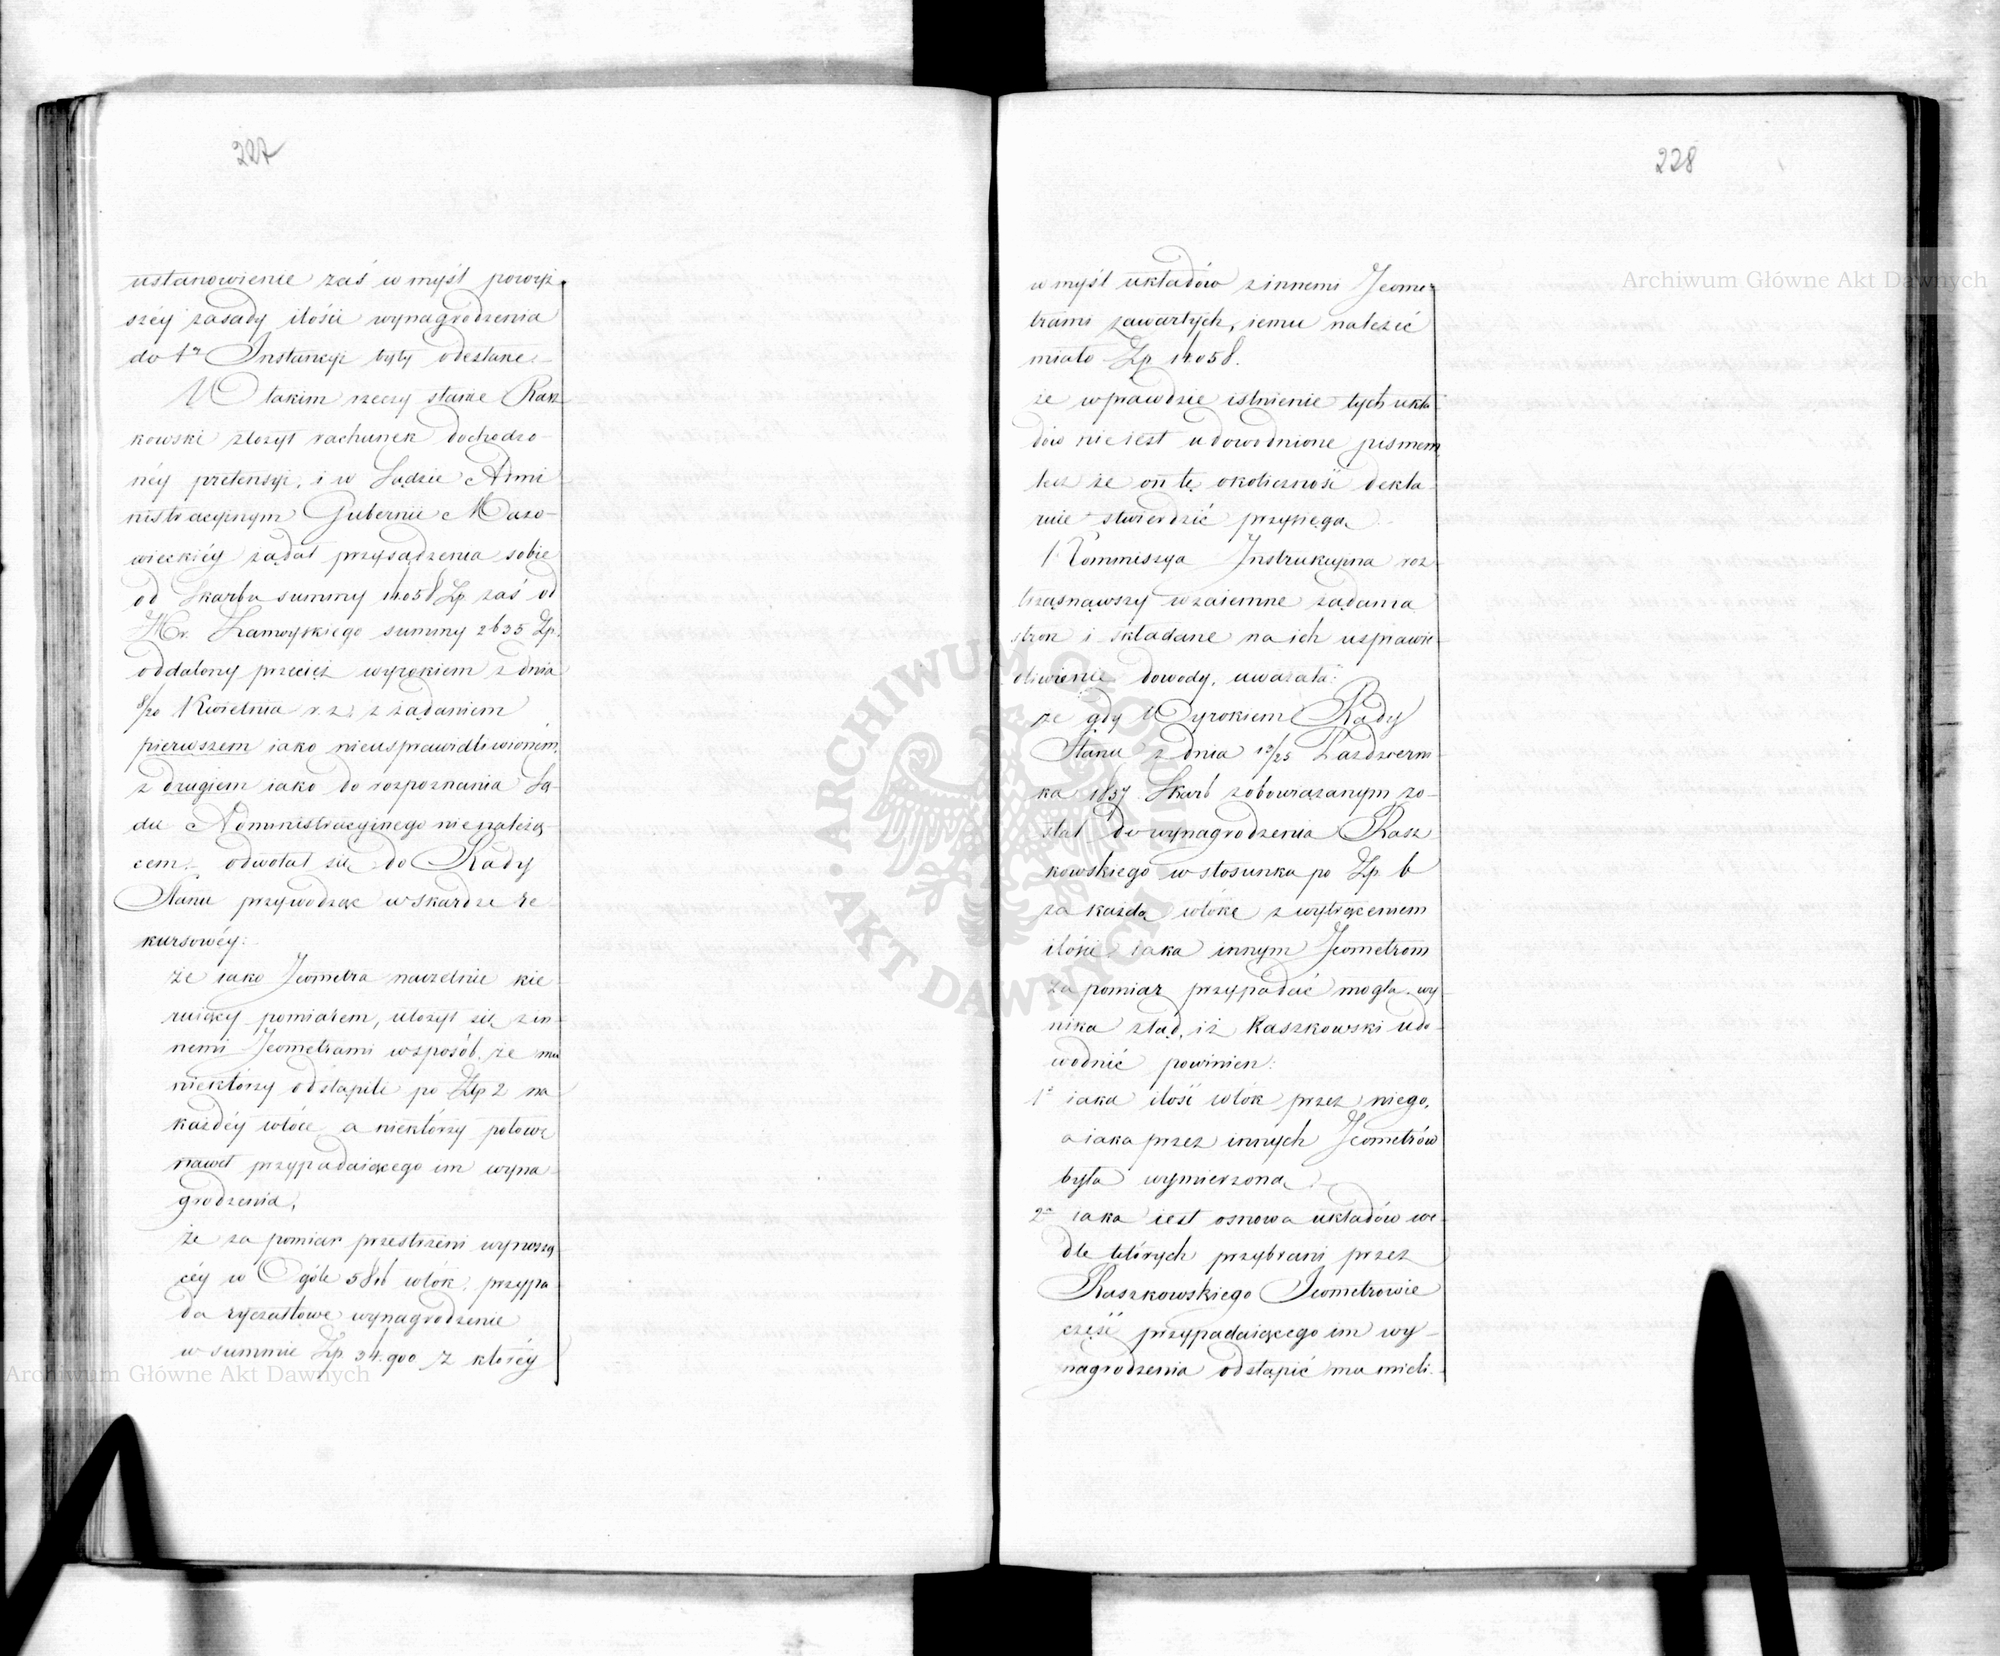 227
ustanowienie zaś w myśl powyż
széy zasady ilości wynagrodzenia
do 1éy Instancyi były odesłane.
W takim rzeczy stanie Rasz
kowski złożył rachunek dochodzo-
néy pretensyi, i w Sądzie Admi
nistracyinym Gubernii Mazo-
wieckiéy żądał przysądzenia sobie
od Skarbu summy 14058 Zp. zaś od
Hr. Zamoyskiego summy 2635 Zp.
oddalony przecież wyrokiem z dnia
8/20 Kwietnia r. z. z żądaniem
pierwszem iako nieusprawiedliwionem,
z drugiem iako do rozpoznania Są-
du Administracyinego nienależą-
cem, odwołał się do Rady
Stanu przywodząc w skardze re-
kursowéy:
że iako Jeometra naczelnie kie-
ruiący pomiarem, ułożył się z in-
nemi Jeometrami w sposób, że mu
niektórzy odstąpili po Złp 2 na
każdéy włóce, a niektórzy połowę
nawet przypadaiącego im wyna-
grodzenia,
że za pomiar przestrzeni wynoszą
céy w Ogóle 5816 włók, przypa-
da ryczałtowe wynagrodzenie
w summie Zp. 34.900 z któréy
228
w myśl układów z innemi Jeome-
trami zawartych, iemu należeć
miało Zp 14058.
że wprawdzie istnienie tych ukła-
dów nie iest udowodnione pismem,
lecz że on tę okoliczność dekla-
ruie stwierdzić przysięgą.
Kommissya Instrukcyina roz-
trząsnąwszy wzaiemne żądania
stron i składane na ich usprawie-
dliwienie dowody, uważała:
że gdy Wyrokiem Rady
Stanu z dnia 13/25 Pazdziern-
ka 1837 Skarb zobowiązanym zo-
stał do wynagrodzenia Rasz
kowskiego w stosunku po Zp. 6
za każdą włókę z wytrąceniem
ilości iaka innym Jeometrom
za pomiar przypadać mogła, wy-
nika ztąd, iż Raszkowski udo-
wodnić powinien:
1º iaka ilość włók przez niego,
a iaka przez innych Jeometrów
była wymierzoną
2º iaka iest osnowa układów we-
dle których przybrani przez
Raszkowskiego Jeometrowie
część przypadaiącego im wy-
nagrodzenia odstąpić mu mieli.
Archiwum Główne Akt Dawnych
Archiwum Główne Akt Dawnych
ARCHIWUM GŁÓWNE AKT DAWNYCH